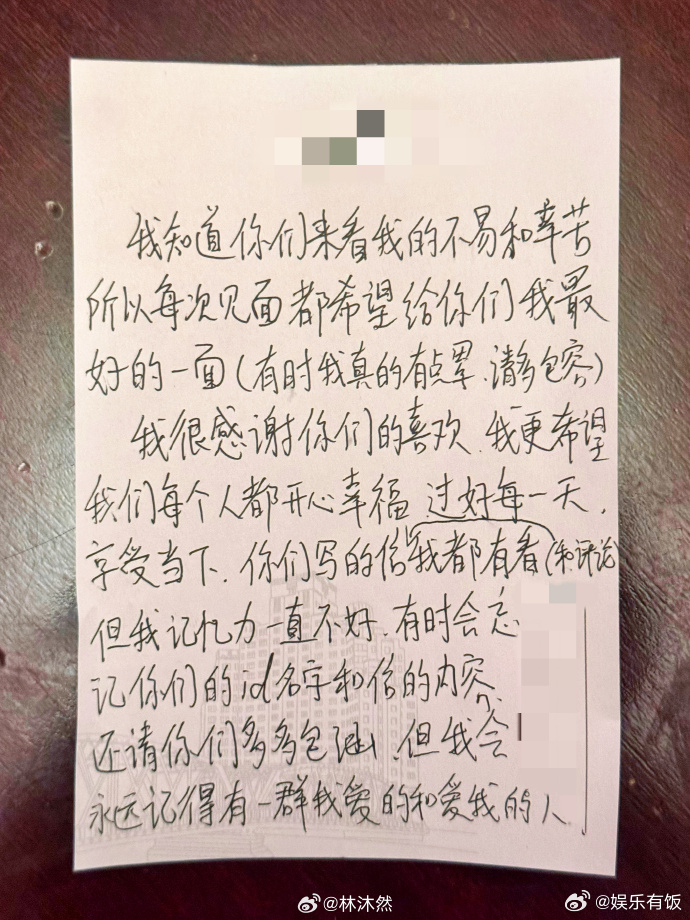 我知道你们来看我的不易和辛苦
所以每次见面都希望给你们我最
好的一面(有时我真的有点累、请多包容)
我很感谢你们的喜欢、我更希望
我们每个人都开心幸福、过好每一天、
享受当下、你们写的信我都有看(和评论)
但我记忆力一直不好、有时会忘
记你们的id名字和信的内容、
还请你们多多包涵、但我会
永远记得有一群我爱的和爱我的人
@林沐然
@娱乐有饭